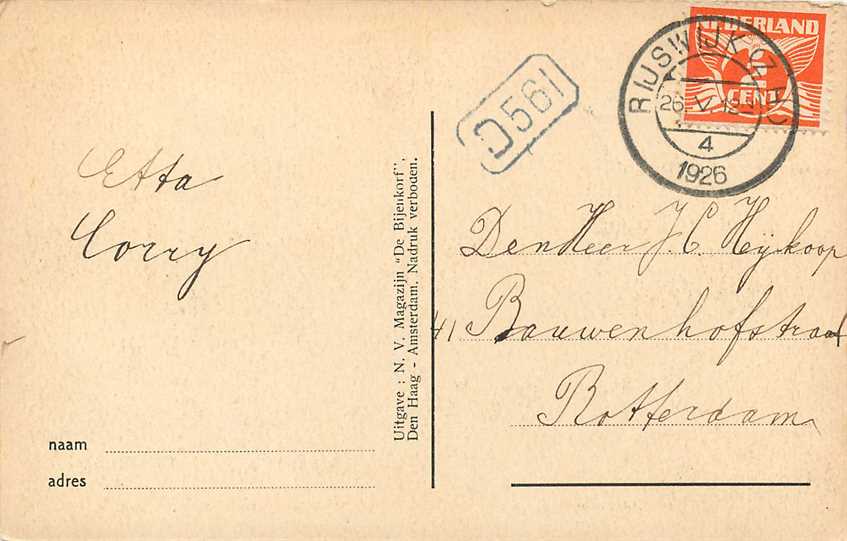 NEDERLAND
CENT
RIJSWIJK (Z.H.)
4
1926
D561
Etta
Corry
Den Heer J. C. Heijkoop
41 Bauwenhofstraat
Rotterdam
Uitgave : N. V. Magazijn "De Bijenkorf",
Den Haag - Amsterdam. Nadruk verboden.
naam
adres